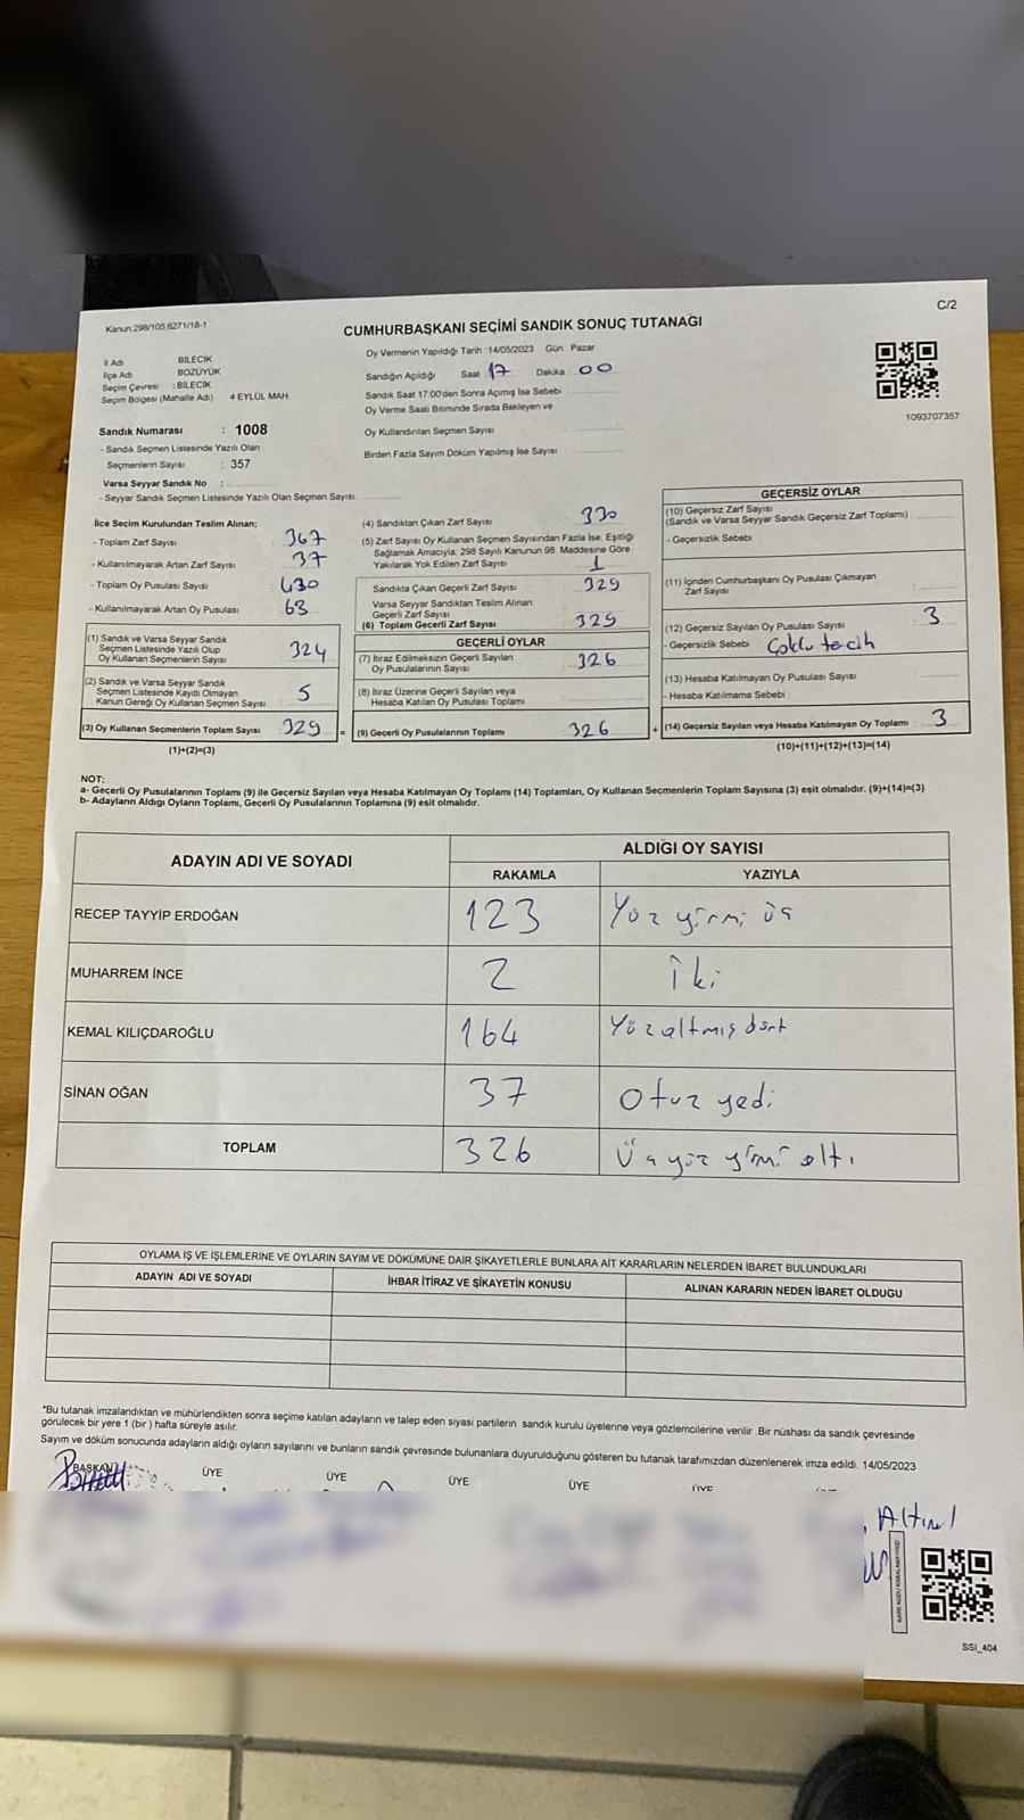 C/2
Kanun 298/105,6271/18-1
CUMHURBAŞKANI SEÇİMİ SANDIK SONUÇ TUTANAĞI
İl Adı BİLECİK
İlçe Adı BOZÜYÜK
Seçim Çevresi : BİLECİK
Seçim Bölgesi (Mahalle Adı) 4 EYLÜL MAH.
Oy Vermenin Yapıldığı Tarih : 14/05/2023 Gün : Pazar
Sandığın Açıldığı Saat 17 Dakika 00
Sandık Saat 17:00'den Sonra Açımış İse Sebebi
Oy Verme Saati Bitiminde Sırada Bekleyen ve
Oy Kullandırılan Seçmen Sayısı
Birden Fazla Sayım Döküm Yapılmış İse Sayısı
1093707357
Sandık Numarası : 1008
- Sandık Seçmen Listesinde Yazılı Olan
Seçmenlerin Sayısı : 357
Varsa Seyyar Sandık No :
- Seyyar Sandık Seçmen Listesinde Yazılı Olan Seçmen Sayısı
İlçe Seçim Kurulundan Teslim Alınan;
- Toplam Zarf Sayısı 367
- Kullanılmayarak Artan Zarf Sayısı 37
- Toplam Oy Pusulası Sayısı 430
- Kullanılmayarak Artan Oy Pusulası 63
(1) Sandık ve Varsa Seyyar Sandık
Seçmen Listesinde Yazılı Olup
Oy Kullanan Seçmenlerin Sayısı 324
(2) Sandık ve Varsa Seyyar Sandık
Seçmen Listesinde Kaydı Olmayan
Kanun Gereği Oy Kullanan Seçmen Sayısı 5
(3) Oy Kullanan Seçmenlerin Toplam Sayısı 329 =
(1)+(2)=(3)
(4) Sandıktan Çıkan Zarf Sayısı 330
(5) Zarf Sayısı Oy Kullanan Seçmen Sayısından Fazla İse, Eşitliği
Sağlamak Amacıyla; 298 Sayılı Kanunun 98. Maddesine Göre
Yakılarak Yok Edilen Zarf Sayısı 1
Sandıkta Çıkan Geçerli Zarf Sayısı 329
Varsa Seyyar Sandıktan Teslim Alınan
Geçerli Zarf Sayısı
(6) Toplam Geçerli Zarf Sayısı 329
GEÇERLİ OYLAR
(7) İtiraz Edilmeksizin Geçerli Sayılan
Oy Pusulalarının Sayısı 326
(8) İtiraz Üzerine Geçerli Sayılan veya
Hesaba Katılan Oy Pusulası Toplamı
(9) Geçerli Oy Pusulalarının Toplamı 326 +
GEÇERSİZ OYLAR
(10) Geçersiz Zarf Sayısı
(Sandık ve Varsa Seyyar Sandık Geçersiz Zarf Toplamı)
- Geçersizlik Sebebi
(11) İçinden Cumhurbaşkanı Oy Pusulası Çıkmayan
Zarf Sayısı
(12) Geçersiz Sayılan Oy Pusulası Sayısı 3
- Geçersizlik Sebebi Çoklu tecih
(13) Hesaba Katılmayan Oy Pusulası Sayısı
- Hesaba Katılmama Sebebi
(14) Geçersiz Sayılan veya Hesaba Katılmayan Oy Toplamı 3
(10)+(11)+(12)+(13)=(14)
NOT:
a- Geçerli Oy Pusulalarının Toplamı (9) ile Geçersiz Sayılan veya Hesaba Katılmayan Oy Toplamı (14) Toplamları, Oy Kullanan Seçmenlerin Toplam Sayısına (3) eşit olmalıdır. (9)+(14)=(3)
b- Adayların Aldığı Oyların Toplamı, Geçerli Oy Pusulalarının Toplamına (9) eşit olmalıdır.
ADAYIN ADI VE SOYADI ALDIĞI OY SAYISI
RAKAMLA YAZIYLA
RECEP TAYYİP ERDOĞAN 123 Yüz yirmi üç
MUHARREM İNCE 2 İki
KEMAL KILIÇDAROĞLU 164 Yüzaltmış dört
SİNAN OĞAN 37 Otuz yedi
TOPLAM 326 Üçyüz yirmi altı
OYLAMA İŞ VE İŞLEMLERİNE VE OYLARIN SAYIM VE DÖKÜMÜNE DAİR ŞİKAYETLERLE BUNLARA AİT KARARLARIN NELERDEN İBARET BULUNDUKLARI
ADAYIN ADI VE SOYADI İHBAR İTİRAZ VE ŞİKAYETİN KONUSU ALINAN KARARIN NEDEN İBARET OLDUĞU
*Bu tutanak imzalandıktan ve mühürlendikten sonra seçime katılan adayların ve talep eden siyasi partilerin sandık kurulu üyelerine veya gözlemcilerine verilir. Bir nüshası da sandık çevresinde
görülecek bir yere 1 (bir) hafta süreyle asılır.
Sayım ve döküm sonucunda adayların aldığı oyların sayılarını ve bunların sandık çevresinde bulunanlara duyurulduğunu gösteren bu tutanak tarafımızdan düzenlenerek imza edildi. 14/05/2023
BAŞKAN ÜYE ÜYE ÜYE ÜYE ÜYE
SSI_404